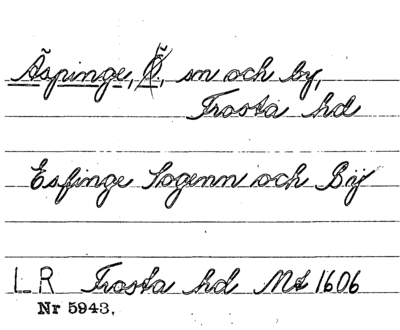 Äspinge, Ö., sn och by,
Frosta hd
Esfinge Sogenn och Bÿ
LR Frosta hd Mt 1606
Nr 5943.